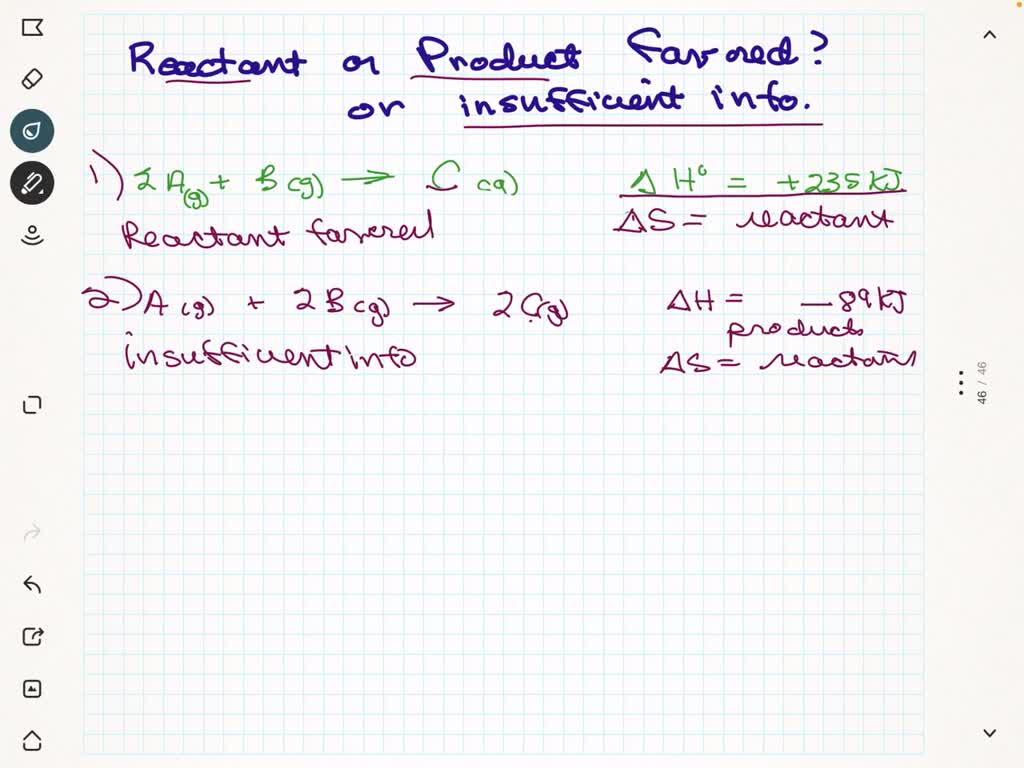 Reactant or Product Favored?
or insufficient info.
1) 2 A(g) + B(g) → C(g) ΔH° = +235 KJ
Reactant favored ΔS = reactant
2) A(g) + 2B(g) → 2C(g) ΔH = -89 KJ
products
insufficient info ΔS = reactant
46 / 46